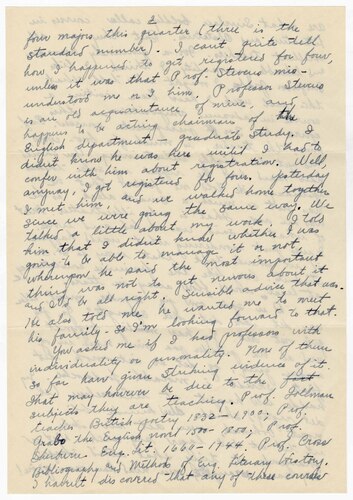 2
four majors this quarter (three is the
standard number). I can't quite tell
how I happened to get registered for four,
unless it was that Prof. Stevens mis-
understood me or I him. Professor Stevens
is an old acquaintance of mine, and
happens to be acting chairman of the
English department – graduate study. I
didn't know he was here until I had to
confer with him about registration. Well,
anyway, I got registered for four. Yesterday
I met him, and we walked home together
since we were going the same way. We
talked a little about my work. I told
him that I didn't know whether I was
going to be able to manage it or not,
whereupon he said the most important
thing was not to get nervous about it
and I'd be all right. Sensible advice that was.
He also told me he wanted me to meet
his family – so I'm looking forward to that.
You asked me if I had professors with
individuality or personality. None of them
so far have given striking evidence of it.
That may however be due to the
subjects they are teaching. Prof.
teaches British poetry 1832–1900; Prof.
Grabo the English Novel 1800–1880; Prof.
Sherburn Eng. Lit. 1660–1744; Prof. Cross
Bibliography and Methods of Eng. Literary history.
I haven't discovered that any of these consider